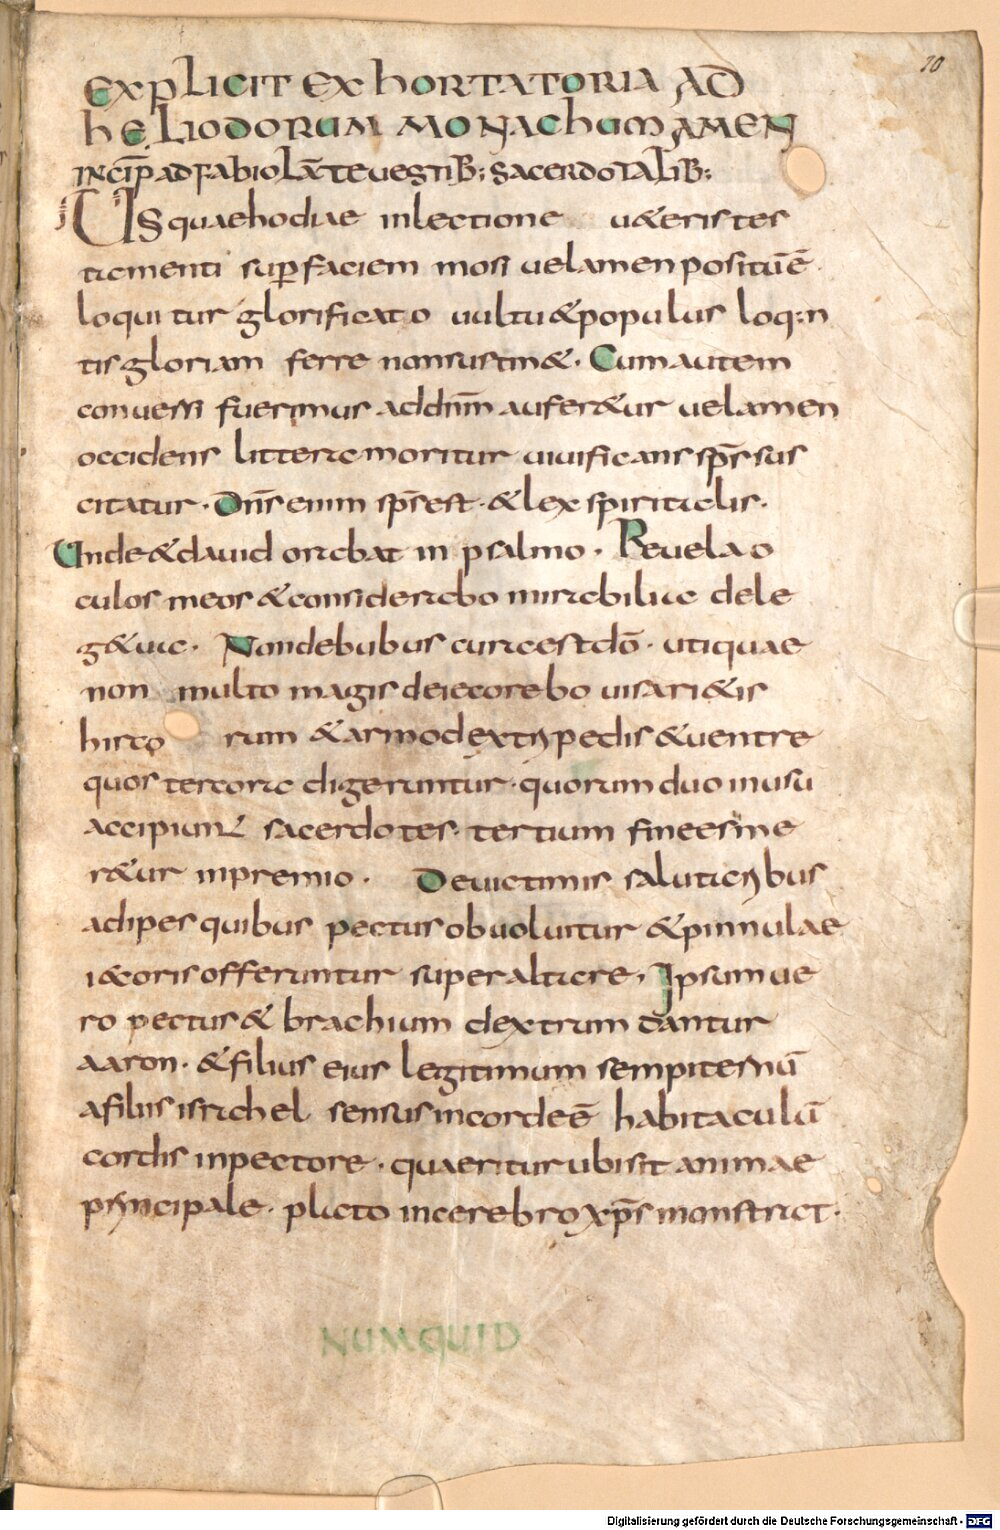 70
EXPLICIT EXHORTATORIA AD
HELIODORUM MONACHUM AMEN
INCIP̄ AD FABIOLĀ TE UESTIB; SACERDOTALIB;
USquaehodiae inlectione u&eristes
tamenti sup faciem mosi uelamen positūē
loquitur glorificato uultu &populus loq:n
tis gloriam ferre nonsustin&. Cum autem
conuersi fuerimus addn̄m aufer&ur uelamen
occidens litterae moritur uiuificans sp̄s sus
citatur. Dn̄s enim sp̄s est. &lex spiritalis.
Unde &dauid orabat in psalmo. Reuela o
culos meos &considerabo mirabilia de le
g&ua. Nondebubus cura est dō. utiquae
non multo magis deiecore bo uisari&is
hirco rum &armo dextro pedis &uentre
quos tercora digeruntur. quorum duo inusu
accipiunt sacerdotes. tertium finees me
r&ur inpremio. Deuictimis salutaribus
adipes quibus pectus obuoluitur &pinnulae
i&coris offeruntur super altare, Ipsum ue
ro pectus & brachium dextrum dantur
aaron. &filius eius legitimum sempiternū
afiliis israhel sensus in cordeē habitaculū
cordis inpectore. quaeritur ubi sit animae
principale. plato incerebro xp̄s monstrat.
NUMQUID
Digitalisierung gefördert durch die Deutsche Forschungsgemeinschaft - DFG